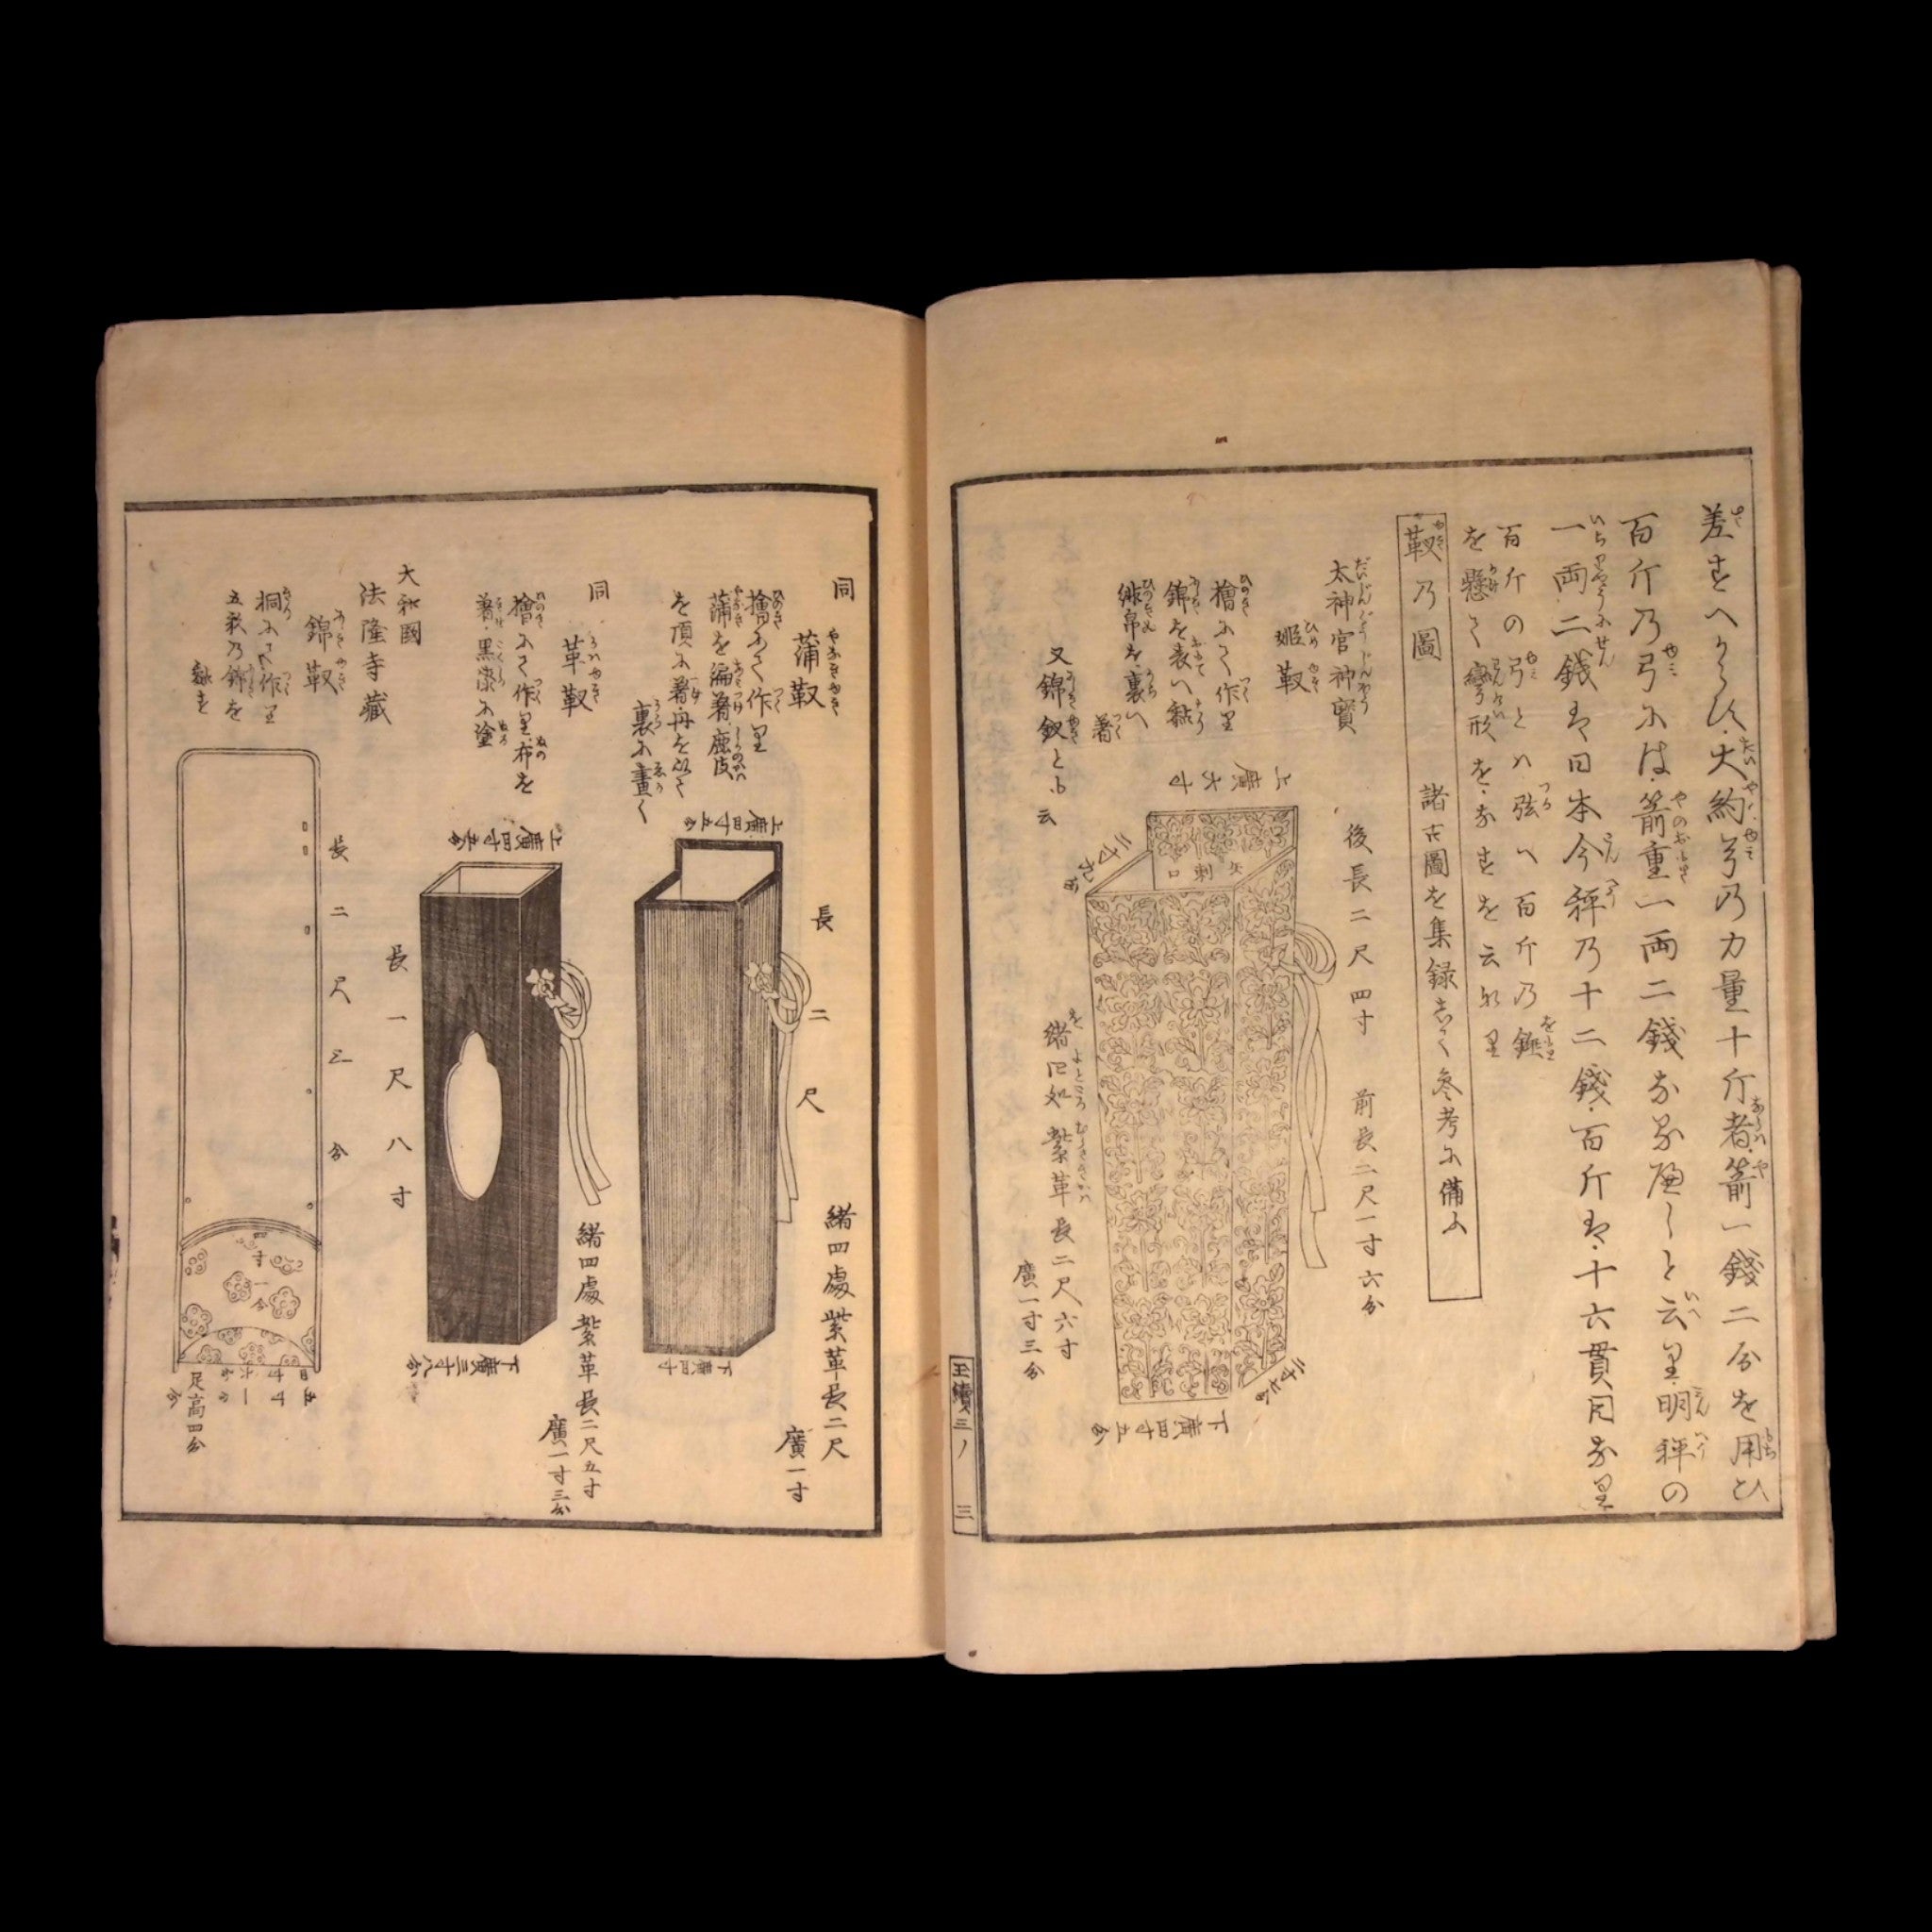 差すへからす大約弓乃力量十斤者箭一錢二分を用ひ
百斤乃弓には箭重一両二錢なる應しと云里明秤の
一両二錢は日本今秤乃十二錢百斤は十六貫目な里
百斤の弓とハ弦へ百斤乃錘
を懸て彎形をなすを云な里
靫乃圖 諸古圖を集録して参考に備ふ
太神宮神寳
姫靫
檜にて作里
錦を表へ黏
緋帛を裏へ
著
又錦靫とも云
後長二尺四寸 前長二尺一寸六分
上廣六寸
二寸九分
矢刺口
緒四処紫革長二尺六寸
廣一寸三分
下廣四寸五分
二寸七分
三ノ 三
同
蒲靫
檜にて作里
蒲を編著鹿皮
を頂に著丹を以て
裏に畫く
上廣四寸五分
長二尺
緒四處紫革長二尺
廣一寸
下廣四寸
同
革靫
檜にて作里布を
著黒漆に塗
上廣四寸五分
長一尺八寸
緒四處紫革長二尺五寸
廣一寸三分
下廣三寸八分
大和國
法隆寺藏
錦靫
桐にて作里
乃錦を
黏す
長二尺三分
四寸一分
足高四分